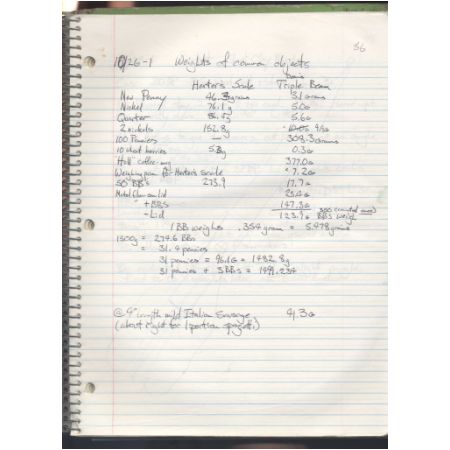 36
10/26-1 Weights of common objects
Harter's Scale Triple Beam
New Penny 46.3grams 3.1 grams
Nickel 76.1g 5.0G
Quarter 5.6G
2 nickels 152.8g
100 Pennies — 308.3 grams
10 dried berries 0.3G
coffee mug 377.0G
Weighing pan for Harter's scale 7.2G
50 BB's 273.9 17.7G
Metal lid 23.4G
+ BBs 147.3G
- Lid 123.9G BB's weigh
1 BB weighs .354 gram = 5.478 grains
1500g = 274.6 BB's
= 31.4 pennies
31 pennies = 96.1G = 1482.8g
31 pennies + 3 BB's = 1499.234
@ 9" length mild Italian Sausage 91.3G
(about right for 1 portion spaghetti)